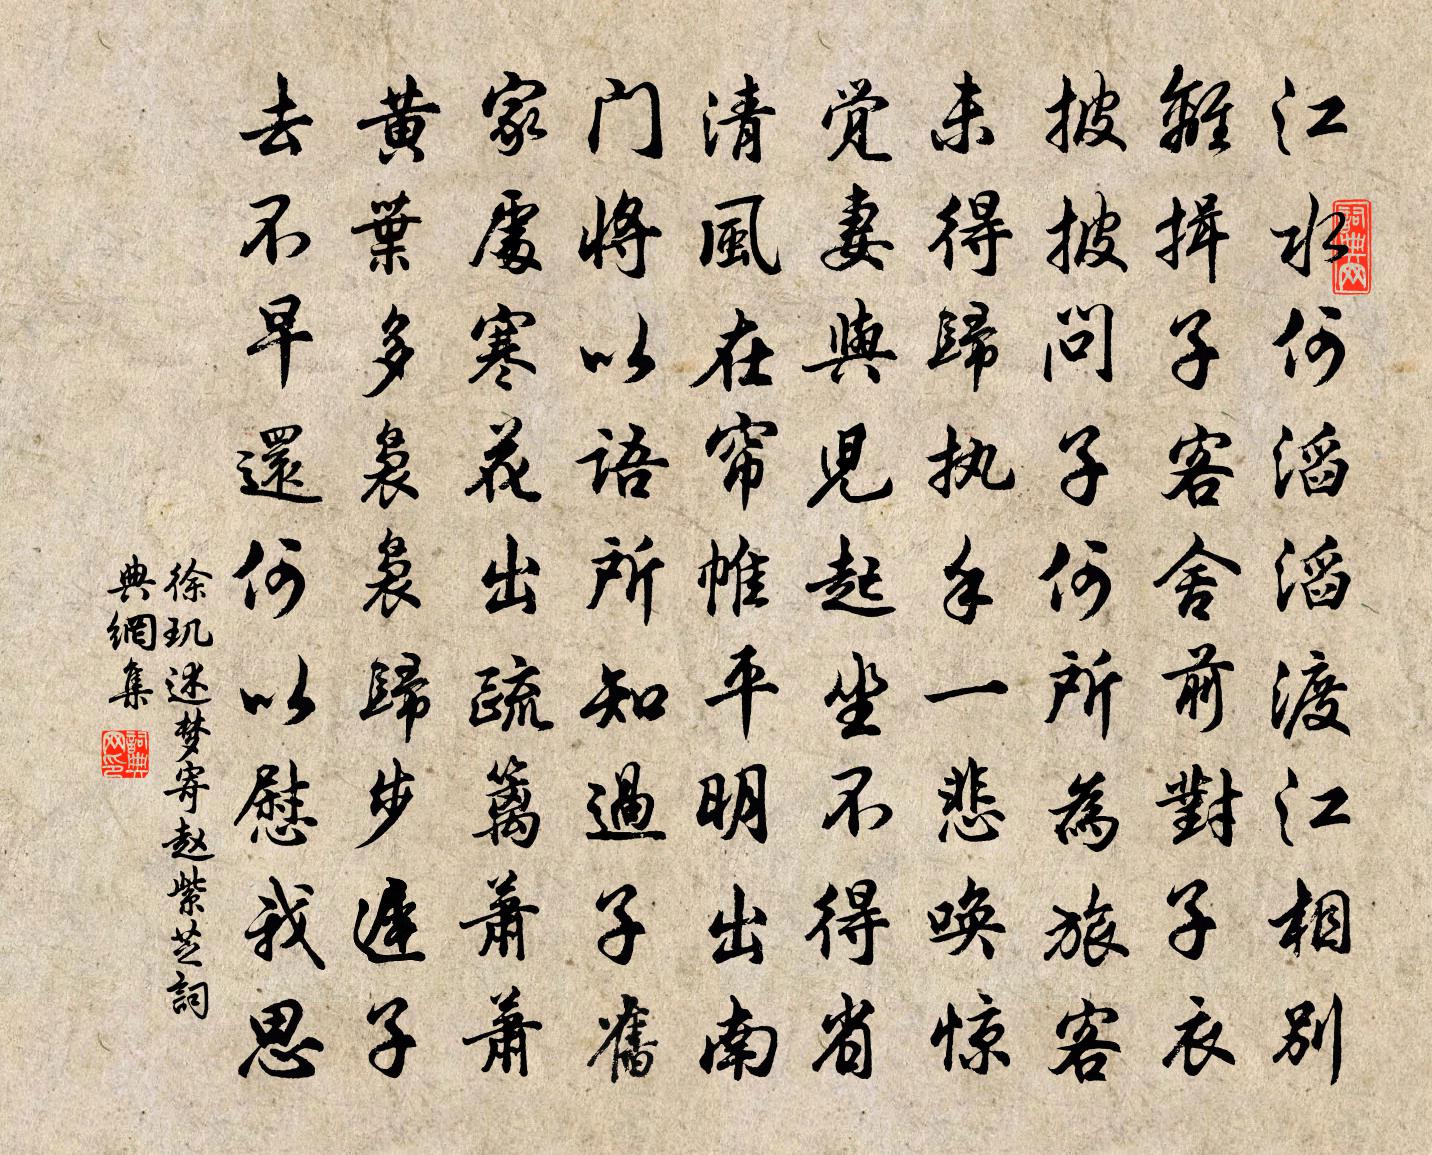 江水何滔滔渡江相别
離揖子客舍前對子衣
披披问子何所為旅客
未得歸执手一悲唤惊
觉妻與児起坐不得省
清風在帘帷平明出南
门將以語所知過子舊
家處寒花出疏籬蕭蕭
黄葉多裊裊歸步遲子
去不早還何以慰我思
徐玑述梦寄赵紫芝詞
典網集
詞典网
詞典网印